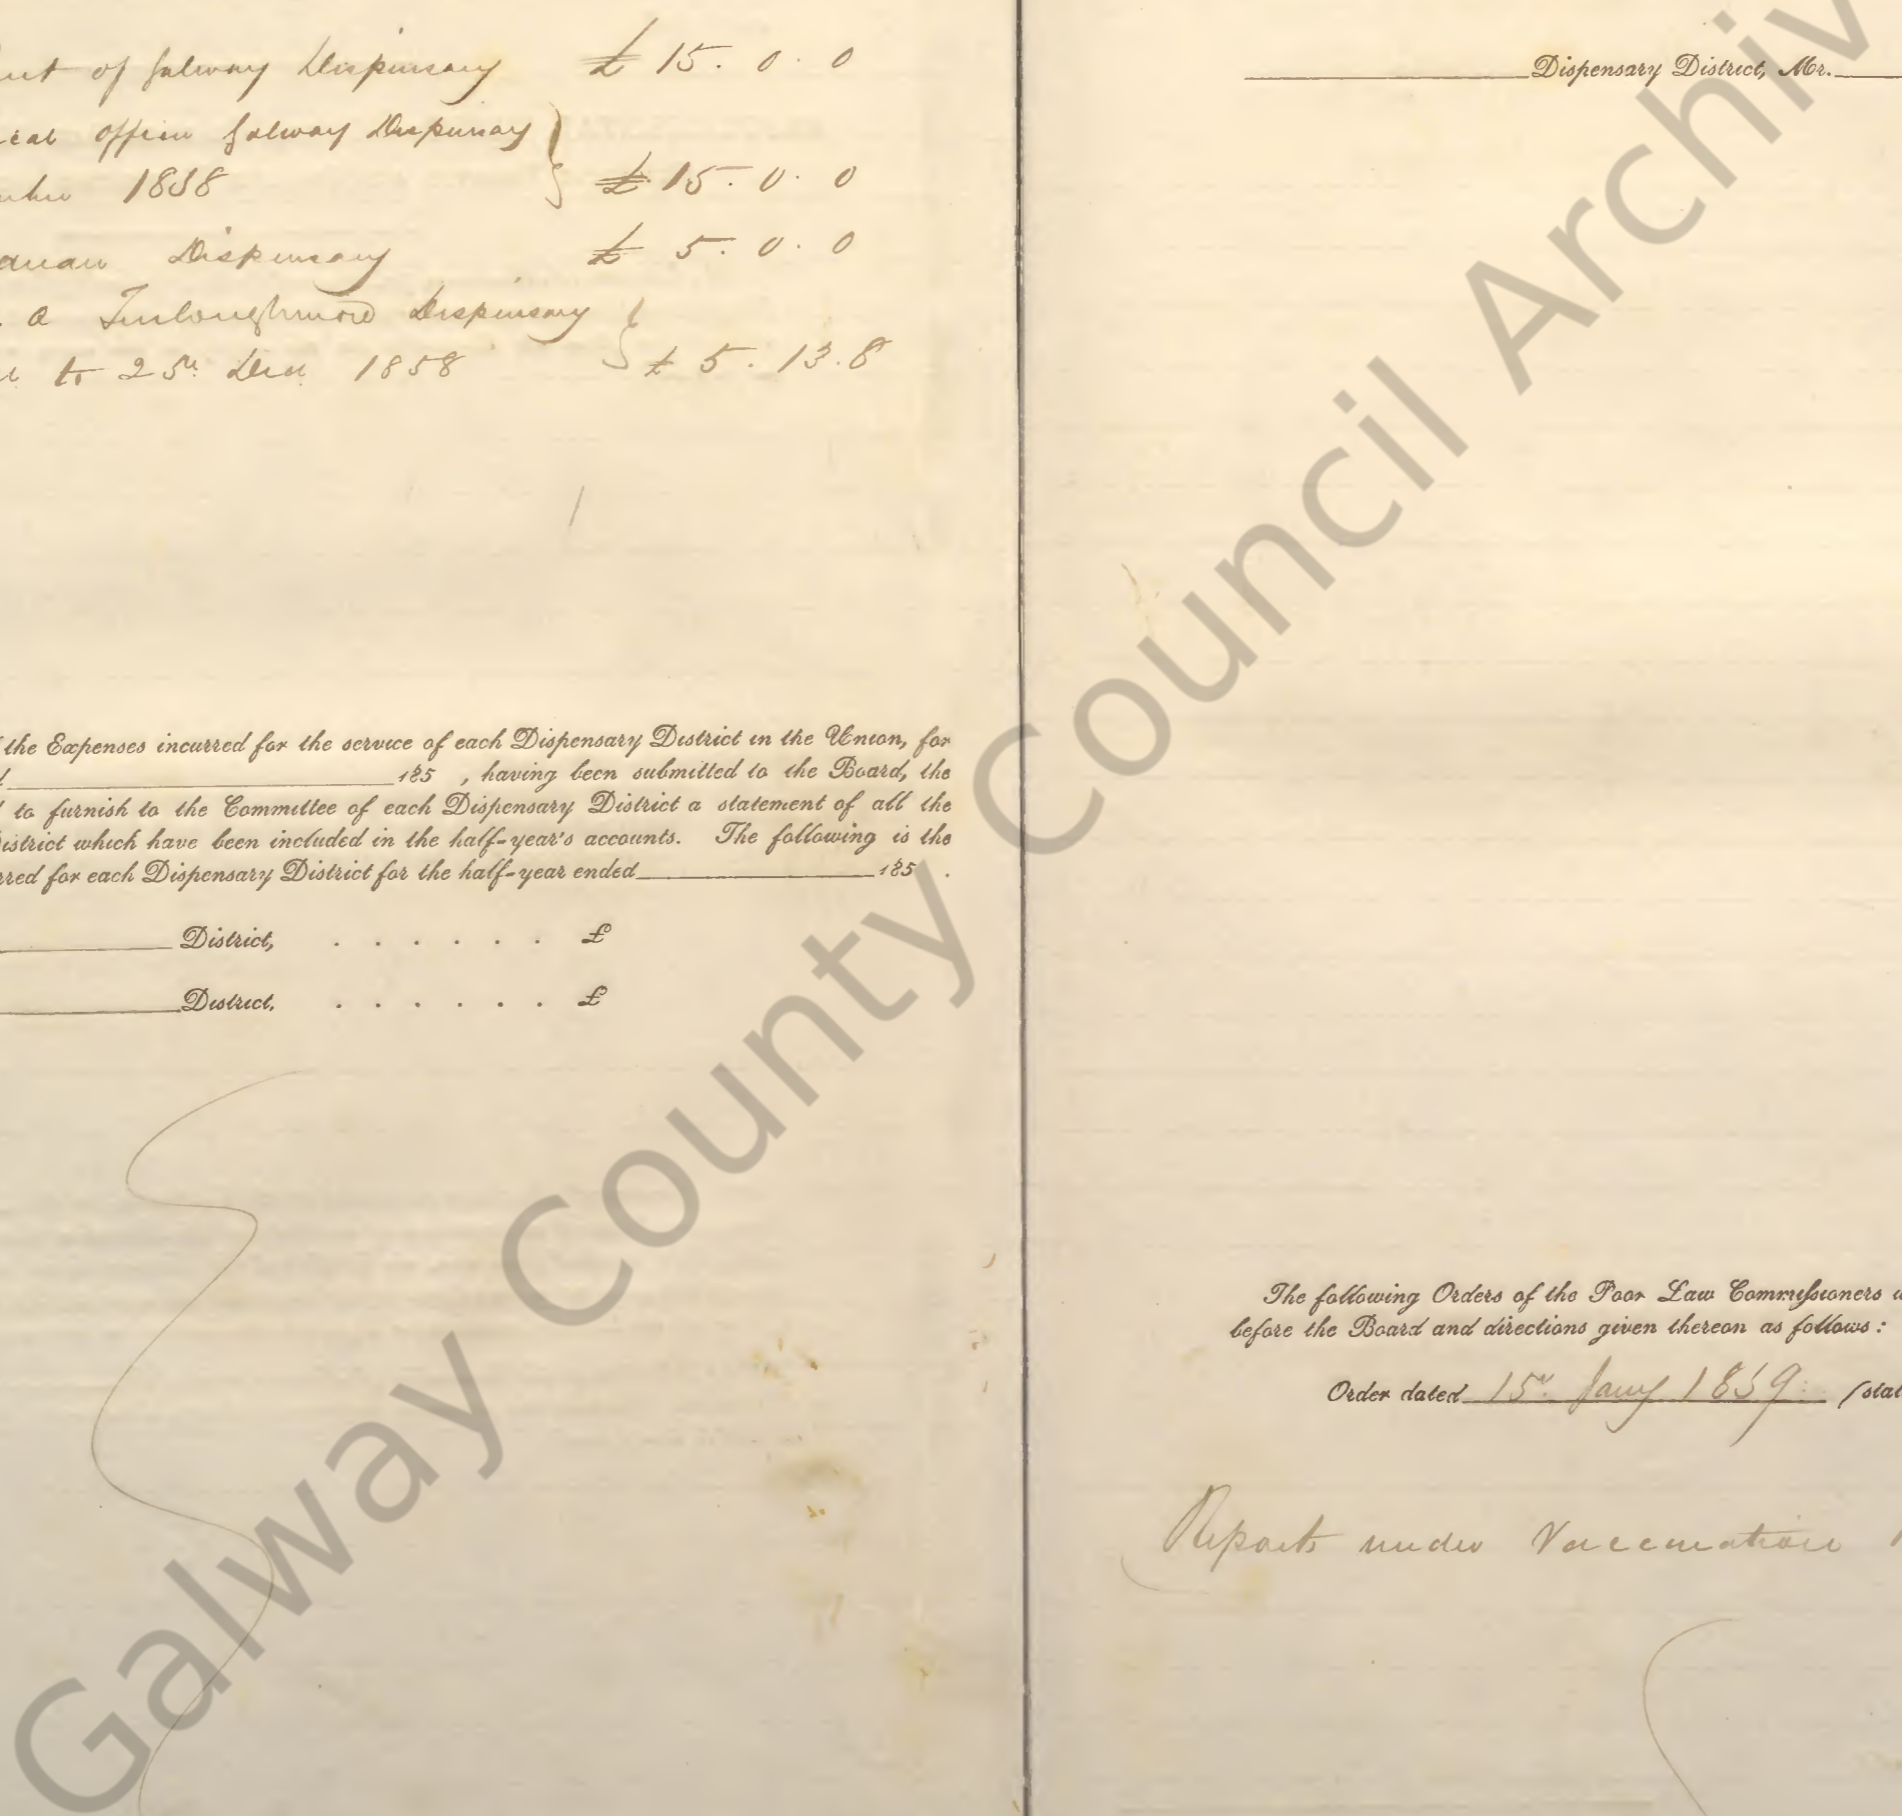 of Galway Dispensary £ 15. 0. 0
office Galway Dispensary
1858 £ 15. 0. 0
Dispensary £ 5. 0. 0
a Turloughmore Dispensary
to 25th Decr 1858 £ 5. 13. 8
the Expenses incurred for the service of each Dispensary District in the Union, for
185 , having been submitted to the Board, the
to furnish to the Committee of each Dispensary District a statement of all the
District which have been included in the half-year's accounts. The following is the
rred for each Dispensary District for the half-year ended 185 .
District, . . . . . . £
District, . . . . . . £
Dispensary District, Mr.
The following Orders of the Poor Law Commissioners
before the Board and directions given thereon as follows:
Order dated 15th Jany 1859 (stat
Reports under Vaccination
Galway County Council Archiv